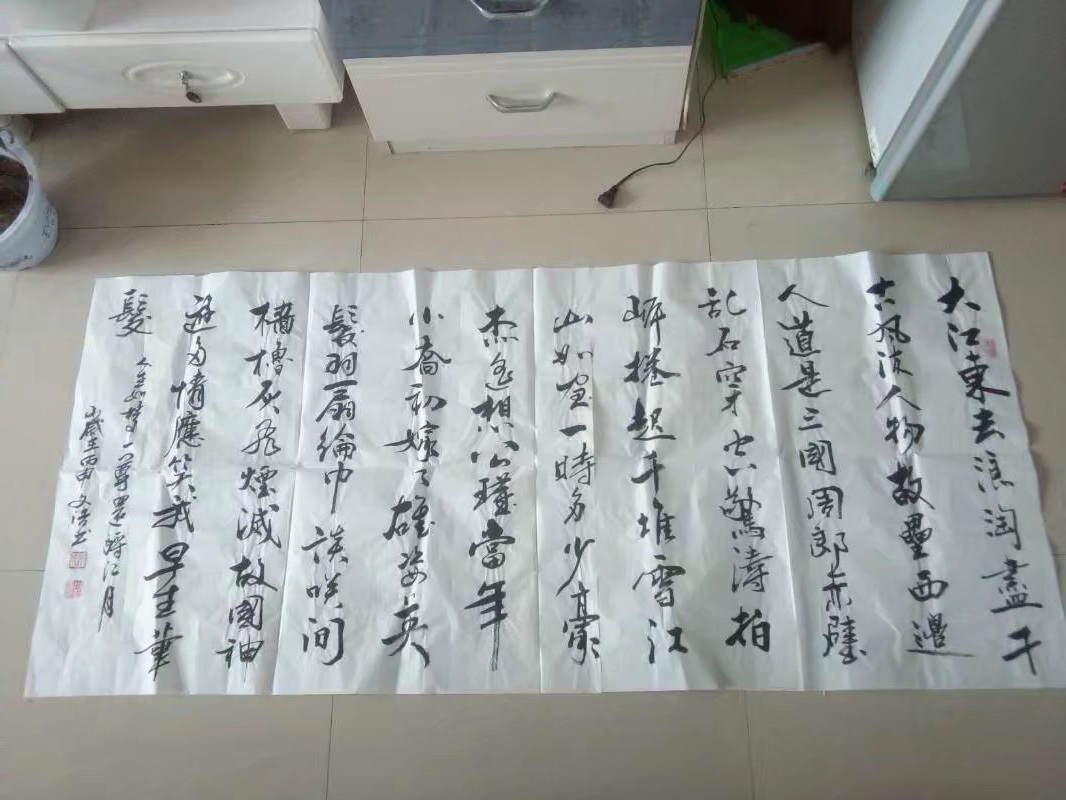 大江東去浪淘盡千
古風流人物故壘西邊
人道是三國周郎赤壁
乱石穿空驚濤拍
岸捲起千堆雪江
山如畫一時多少豪
杰遙想公瑾當年
小喬初嫁了雄姿英
髮羽扇綸巾談咲间
檣櫓灰飛煙滅故國神
遊多情應笑我早生華
髮
人生如夢一尊還酹江月
歲在丙申